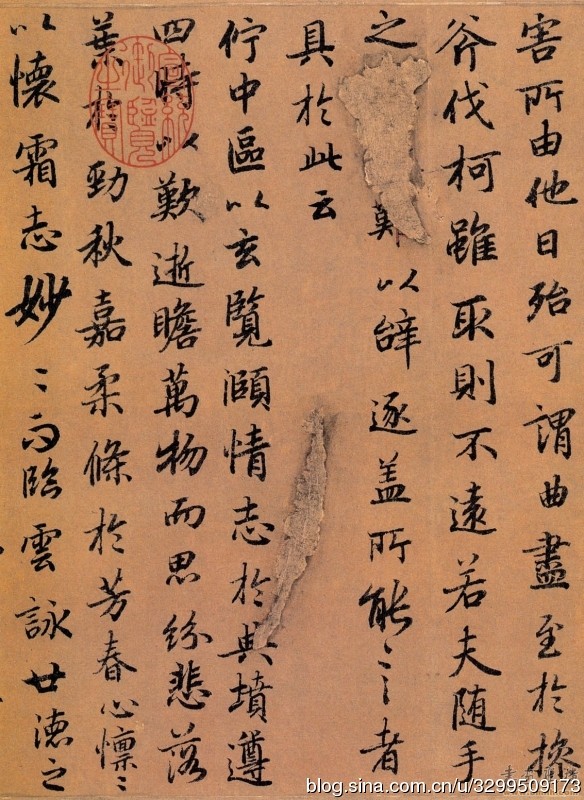 害所由他日殆可謂曲盡至於操
斧伐柯雖取則不遠若夫随手
之難以辝逐盖所能言者
具於此云
佇中區以玄覽頤情志於典墳遵
四時以歎逝瞻萬物而思紛悲落
葉於勁秋嘉柔條於芳春心懍〻
以懷霜志妙〻而臨雲詠世德之
blog.sina.com.cn/u/3299509173